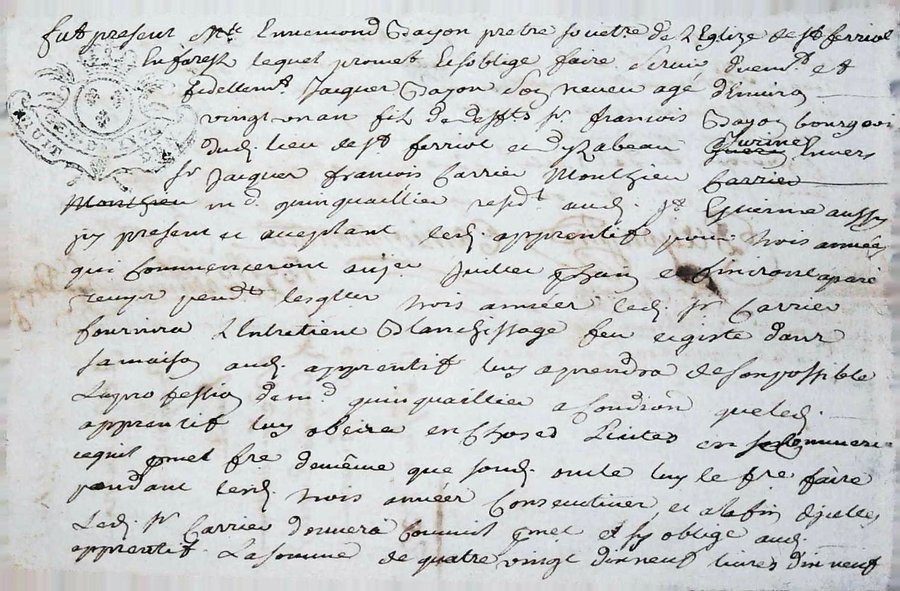 fut present Mre Ennemond Bayon pretre societre de l'Eglize de St ferriol
En forest lequel promet et soblige faire servir duemt et
fidellemt Jacques Bayon son neveu agé d'Environ
vingt un an fils de deffts sr françois Bayon bourgeois
dud. lieu de St ferriol et d'yzabeau Thurine Envers
sr Jacques françois Carrier Monthieu Carrier
Monthieu md. quinquaillier residt aud. St Etienne aussy
py present et acceptant led. apprentif pour trois années
qui commenceront au per Juillet pchain et finiront a pareil
temps pendt lesquelles trois années led. sr Carrier
fournira l'Entretient Blanchissage feu et giste dans
sa maison aud. apprentif luy aprendra de son possible
La profession de md quinquaillier a condition que led.
apprentif luy obeira en choses licites en son commerce
cequil pmet fre de même que sond. oncle luy le fre faire
pendant lesd. trois années Consecutives et a la fin dycelles
Led. sr Carrier donnera comme il pmet et sy oblige aud.
apprentif La somme de quatre vingt dixneuf livres dixneuf